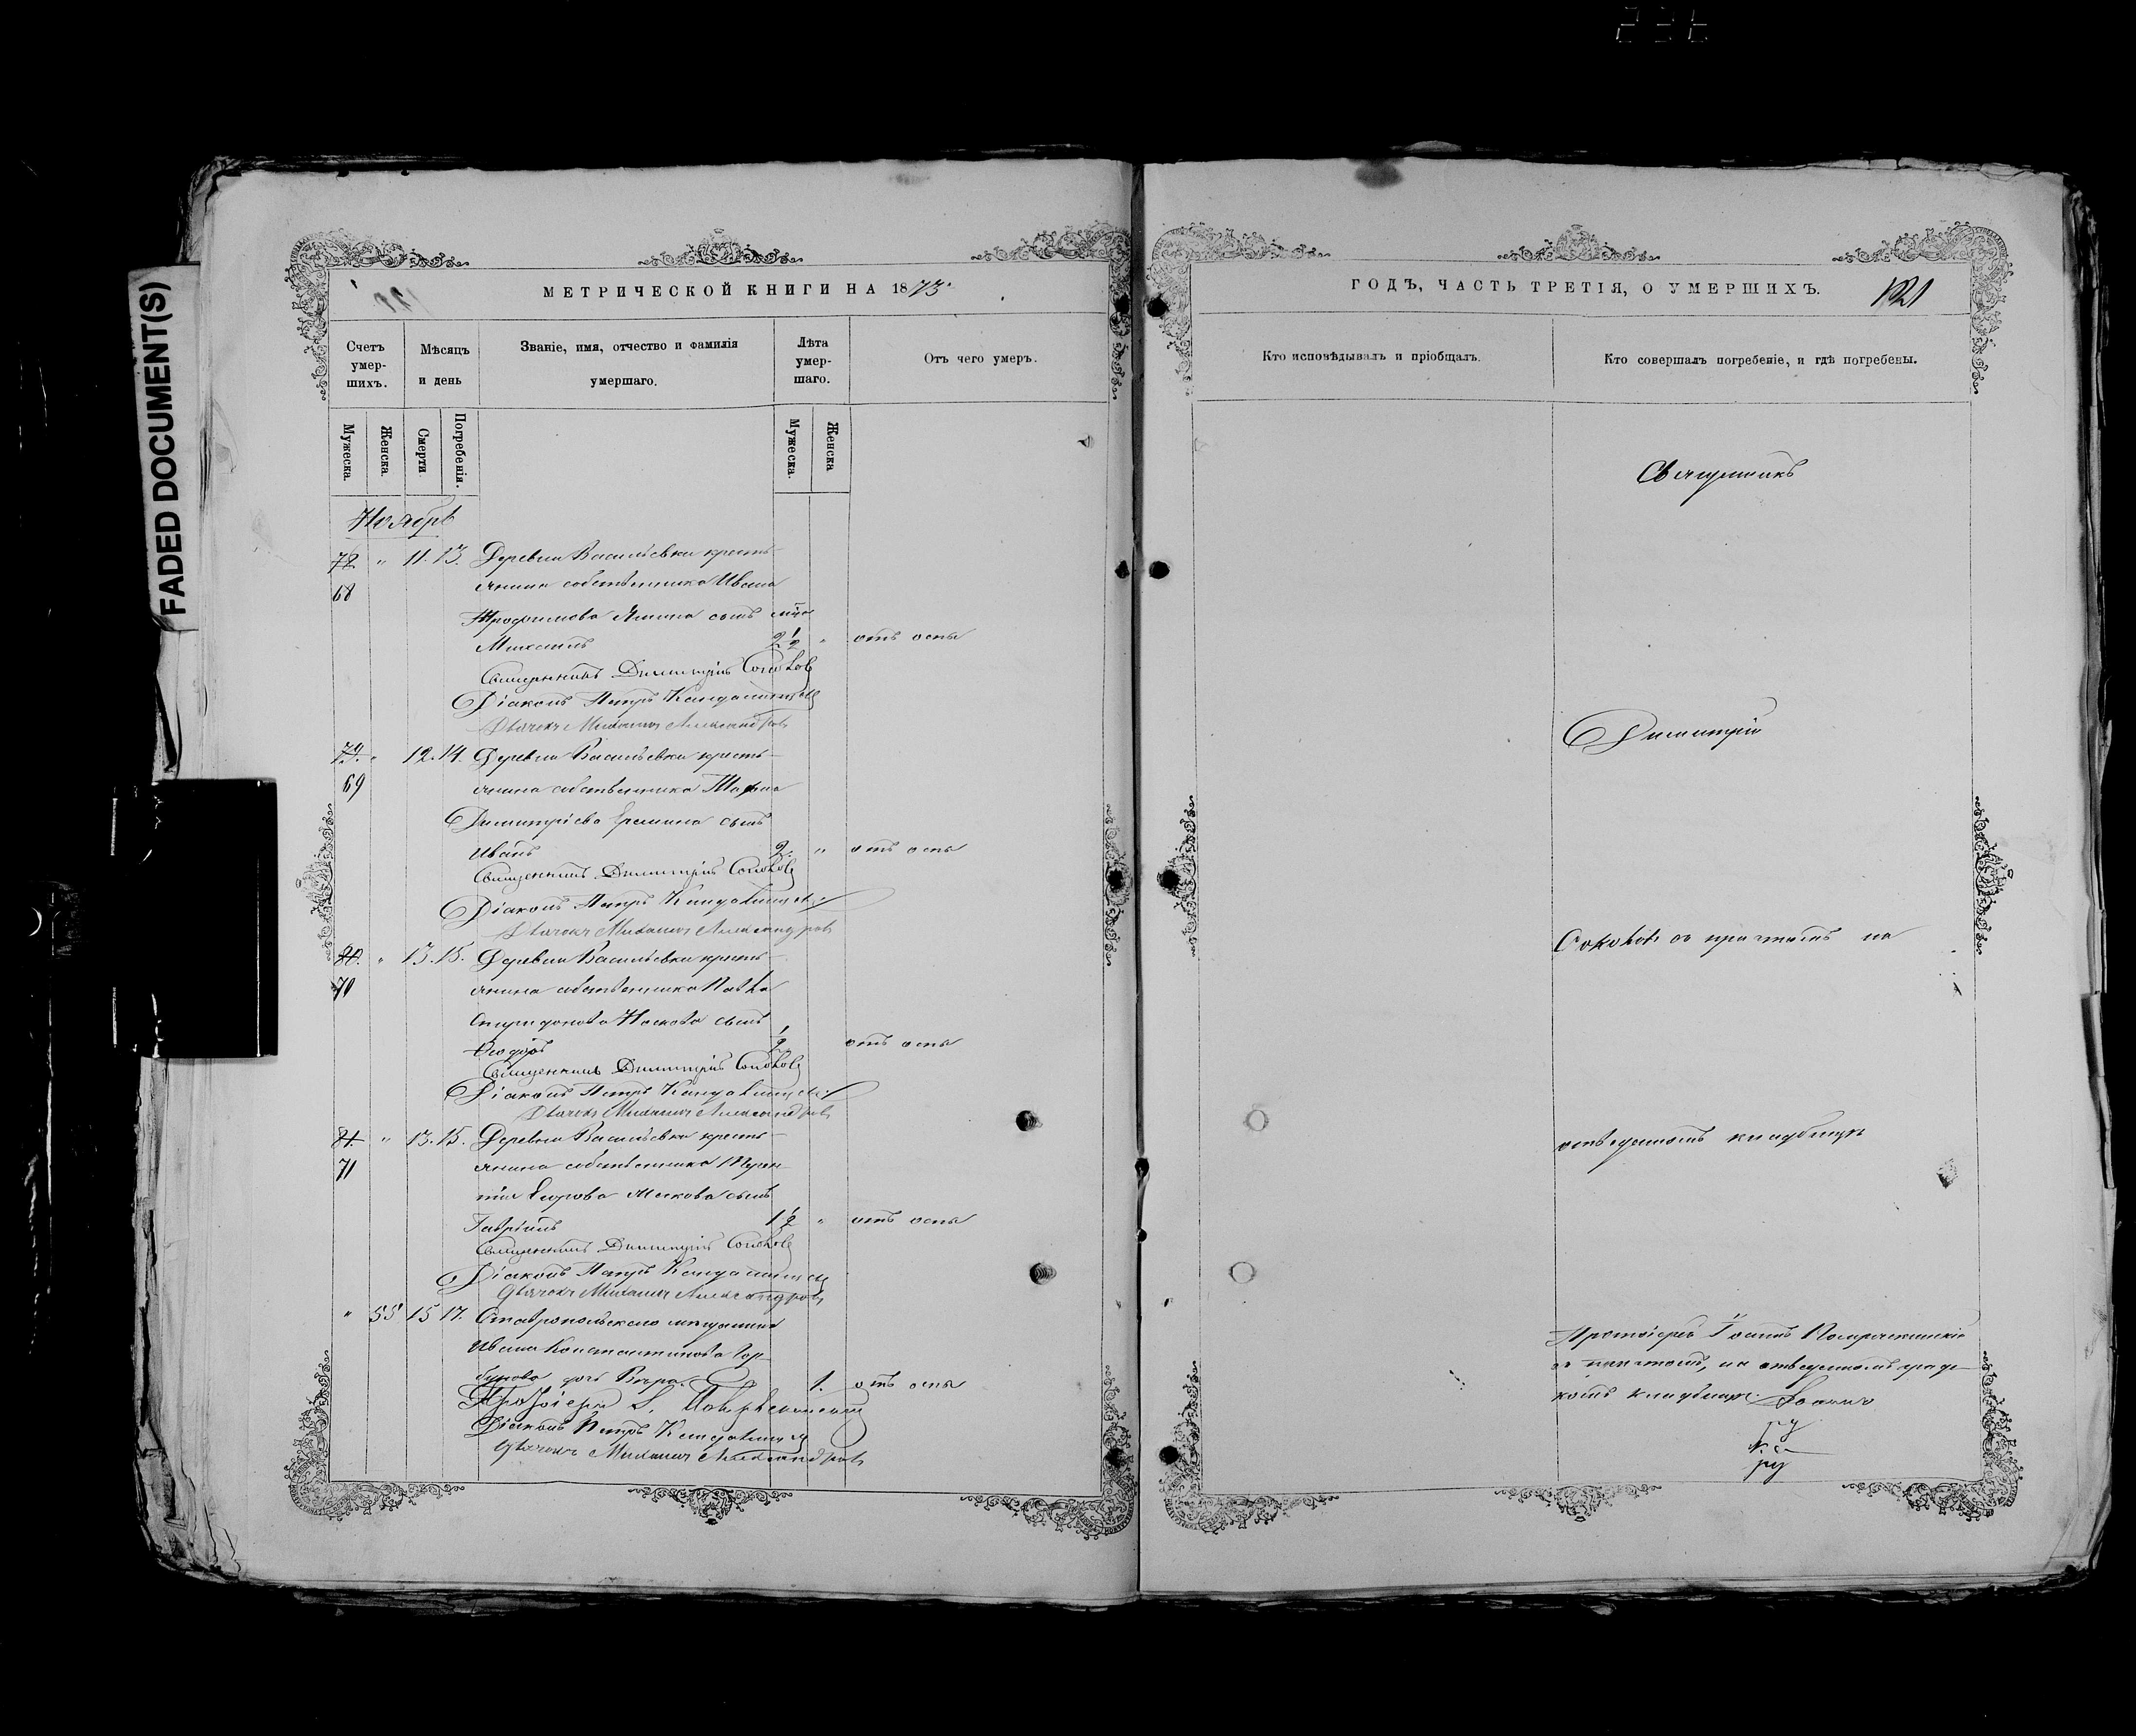 FADED DOCUMENT(S)
МЕТРИЧЕСКОЙ КНИГИ НА 1873
Счетъ умер-шихъ.
Мѣсяцъ и день
Званіе, имя, отчество и фамилія умершаго.
Лѣта умер-шаго.
Отъ чего умеръ.
Мужеска.
Женска.
Смерти
Погребенія.
Мужеска.
Женска
Ноябрь
78 " 11. 13. Деревни Васильевки кресть-
68 янина собственника Ивана
Трофимова сынъ
Михаилъ 2 1/2 " отъ оспы
Священникъ Димитрій Соколовъ
Діаконъ Петръ
Дьячекъ Михаилъ Александровъ
79. " 12. 14. Деревни Васильевки кресть-
69 янина собственника
Димитріева Еремина сынъ
Иванъ 2. " отъ оспы
Священникъ Димитрій Соколовъ
Діаконъ Петръ
Дьячекъ Михаилъ Александровъ
80. " 13. 15. Деревни Васильевки кресть-
70 янина собственника Павла
Спиридонова Носкова сынъ
Ѳеодоръ 1/2 отъ оспы
Священникъ Димитрій Соколовъ
Діаконъ Петръ
Дьячекъ Михаилъ Александровъ
81. " 13. 15. Деревни Васильевки кресть-
71 янина собственника Терен-
тія сынъ
Гавріилъ 1 1/2 " отъ оспы
Священникъ Димитрій Соколовъ
Діаконъ Петръ
Дьячекъ Михаилъ Александровъ
" 55 15 17. Ставропольскаго мещанина
Ивана Константинова Гор-
бунова дочь Вѣра. 1. отъ оспы
Протоіерей І.
Діаконъ Петръ
Дьячекъ Михаилъ Александровъ
ГОДЪ, ЧАСТЬ ТРЕТІЯ, О УМЕРШИХЪ.
121
Кто исповѣдывалъ и пріобщалъ.
Кто совершалъ погребеніе, и гдѣ погребены.
Священникъ
Димитрій
Соколовъ съ причтомъ на
отведенномъ кладбищѣ
Протоіерей Іоаннъ
съ причтомъ, на отведенномъ град-
комъ кладбищѣ.